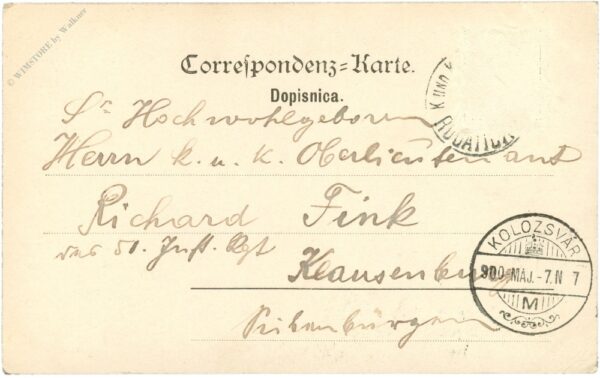 © WIMSTORE by Walkner
Correspondenz=Karte.
Dopisnica.
K UND K
ROGATICA
Sr Hochwohlgeboren
Herrn k. u. k. Oberlieutenant
Richard Fink
des 51. Inft. Rgt
Klausenburg
Siebenbürgen
KOLOZSVÁR
900 MAJ. -7. N 7
M